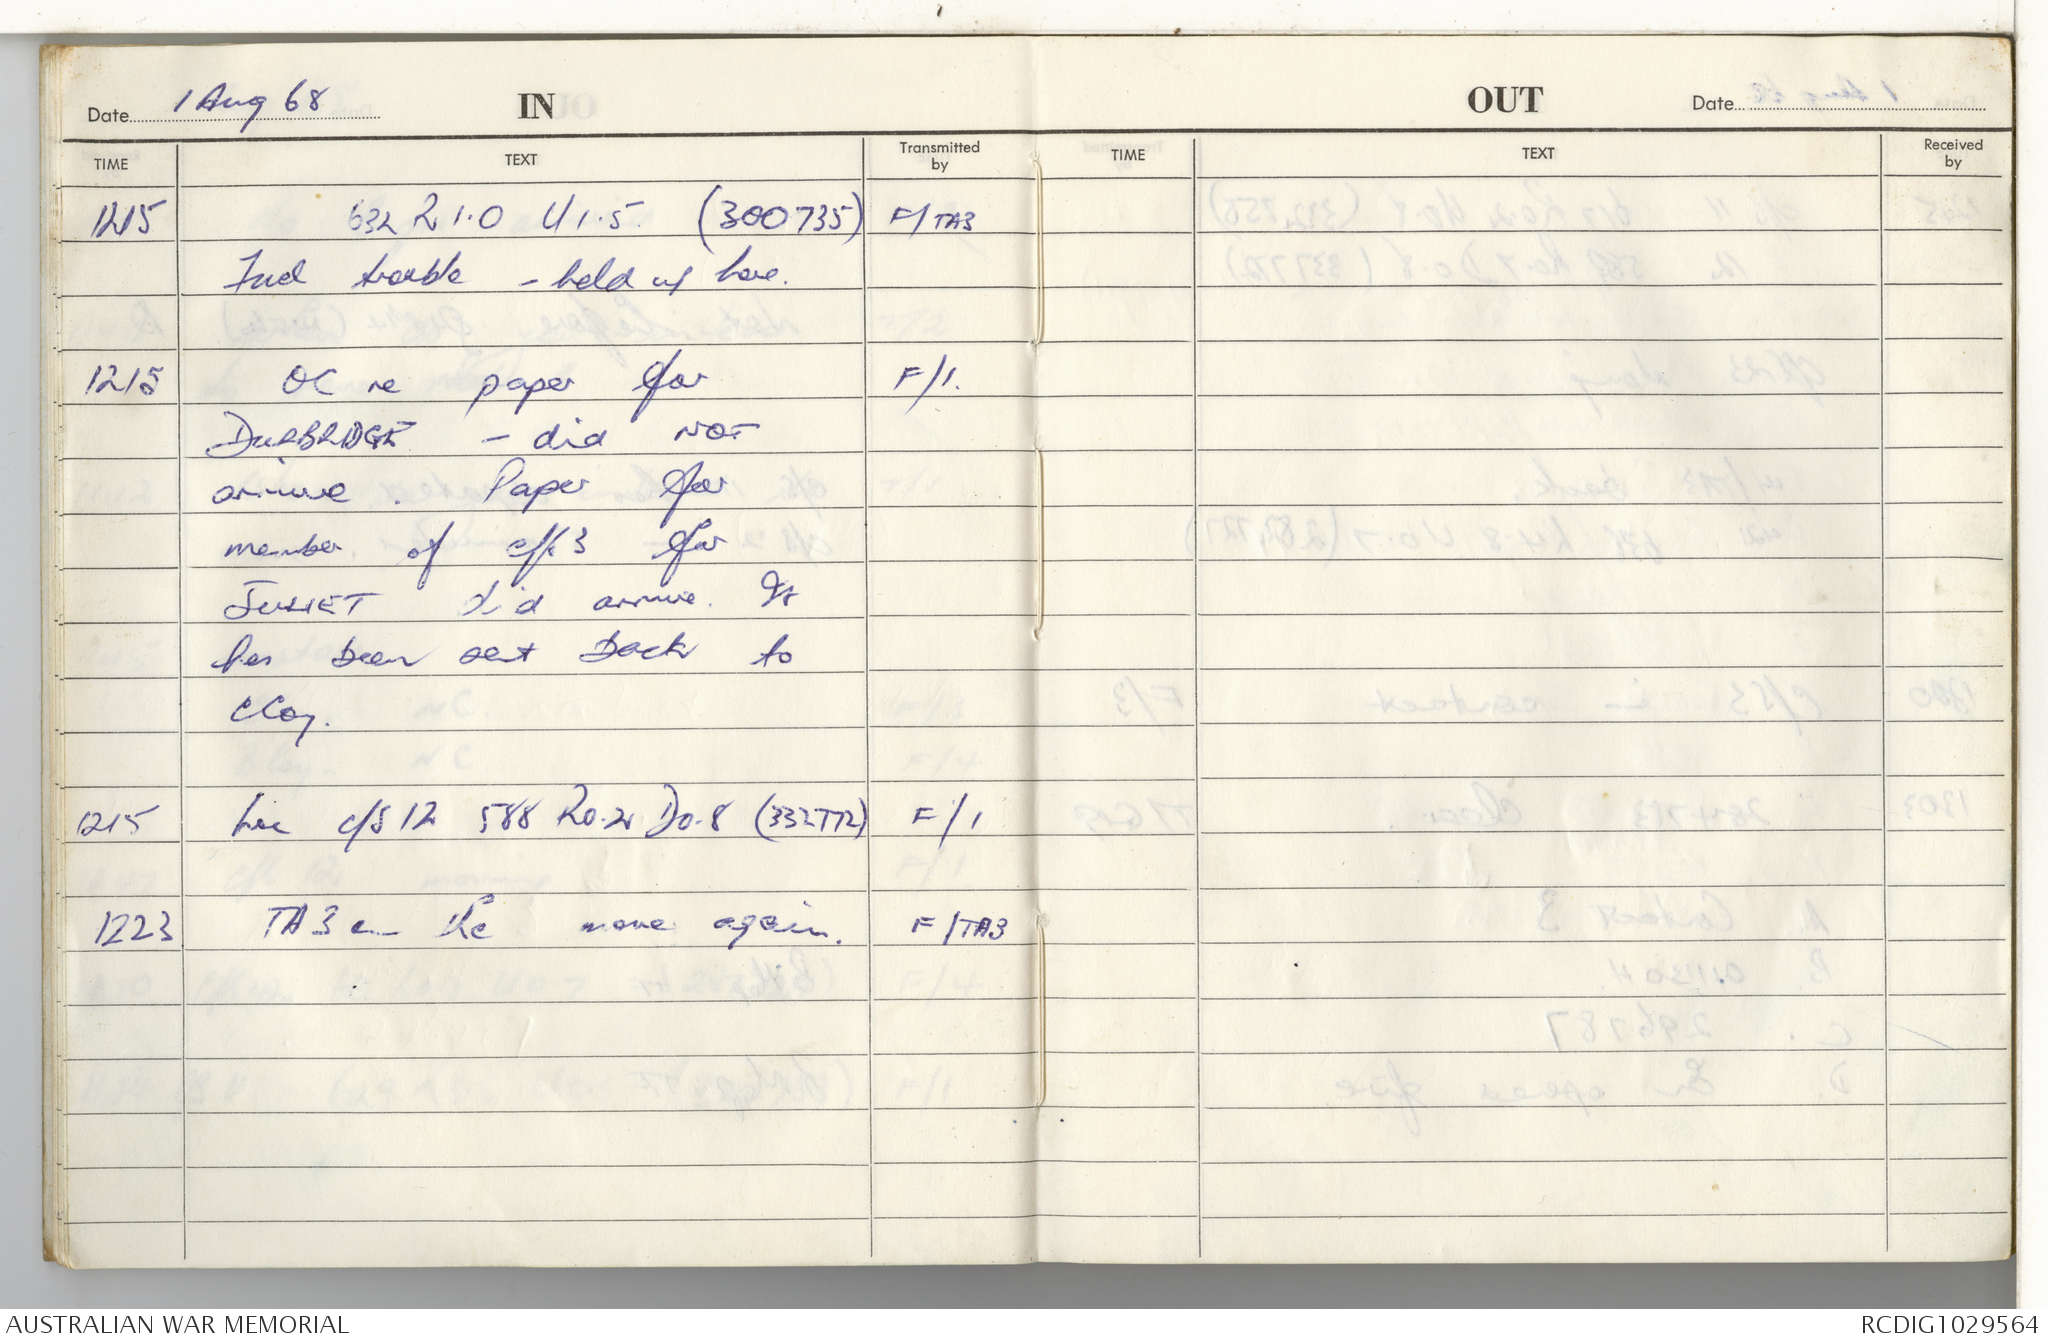 Date 1 Aug 68 IN
TIME TEXT Transmitted by
1215 632 R1.0 U1.5 (300735) F/TA3
Fuel trouble - held up here.
1215 OC re paper for F/1.
DURBRIDGE - did NOT
arrive. Paper for
member of c/s 3 for
JULIET did arrive. It
has been sent back to
C Coy.
1215 Loc c/s 12 588 R0.2 D0.8 (332772) F/1
1223 TA3 on the move again. F/TA3
OUT Date
TIME TEXT Received by
AUSTRALIAN WAR MEMORIAL RCDIG1029564